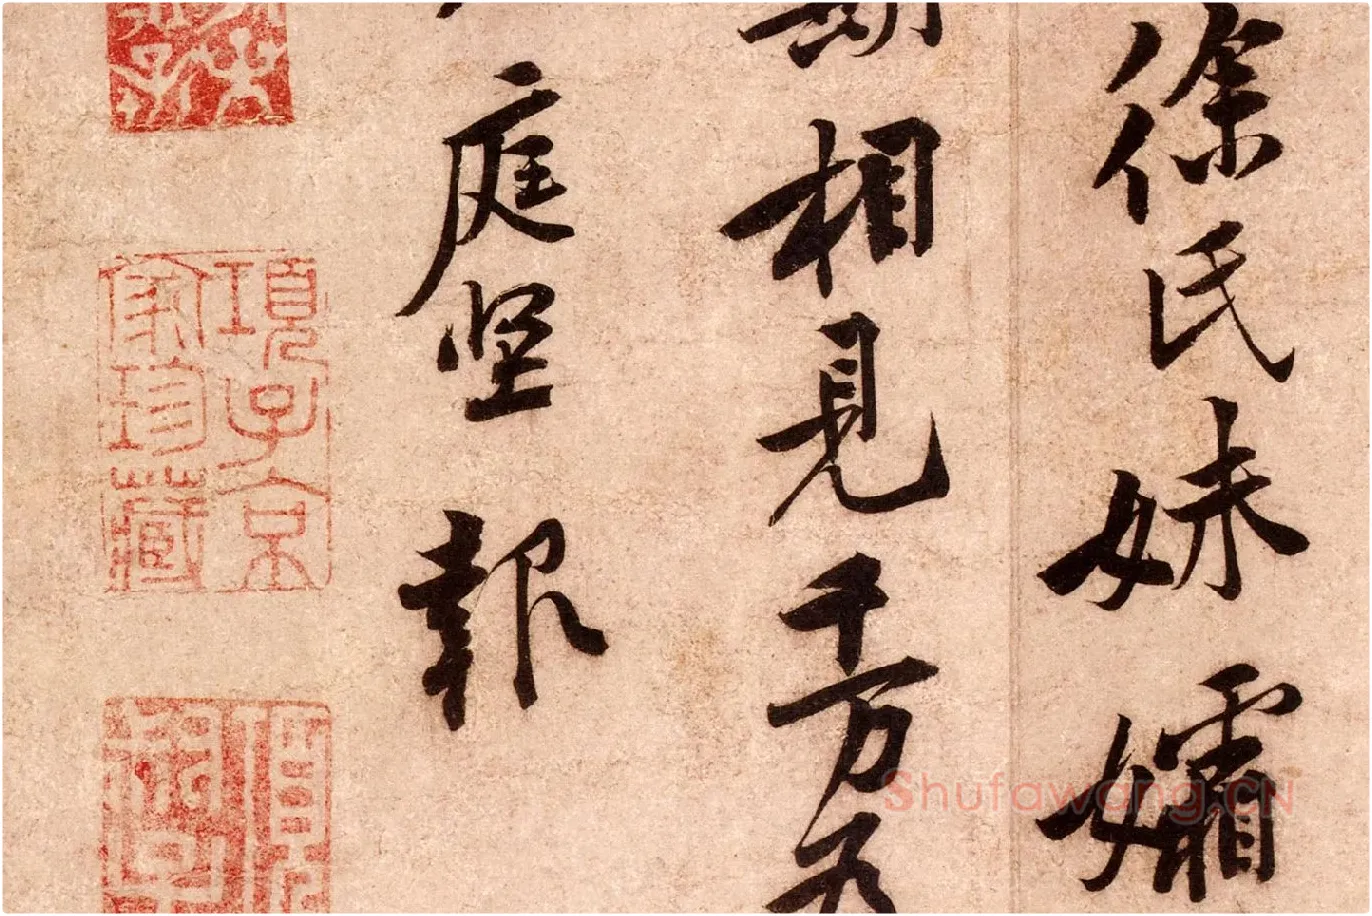 徐氏妹孀
相見千万
庭坚報
項子京
家珍藏
Shufawang.CN